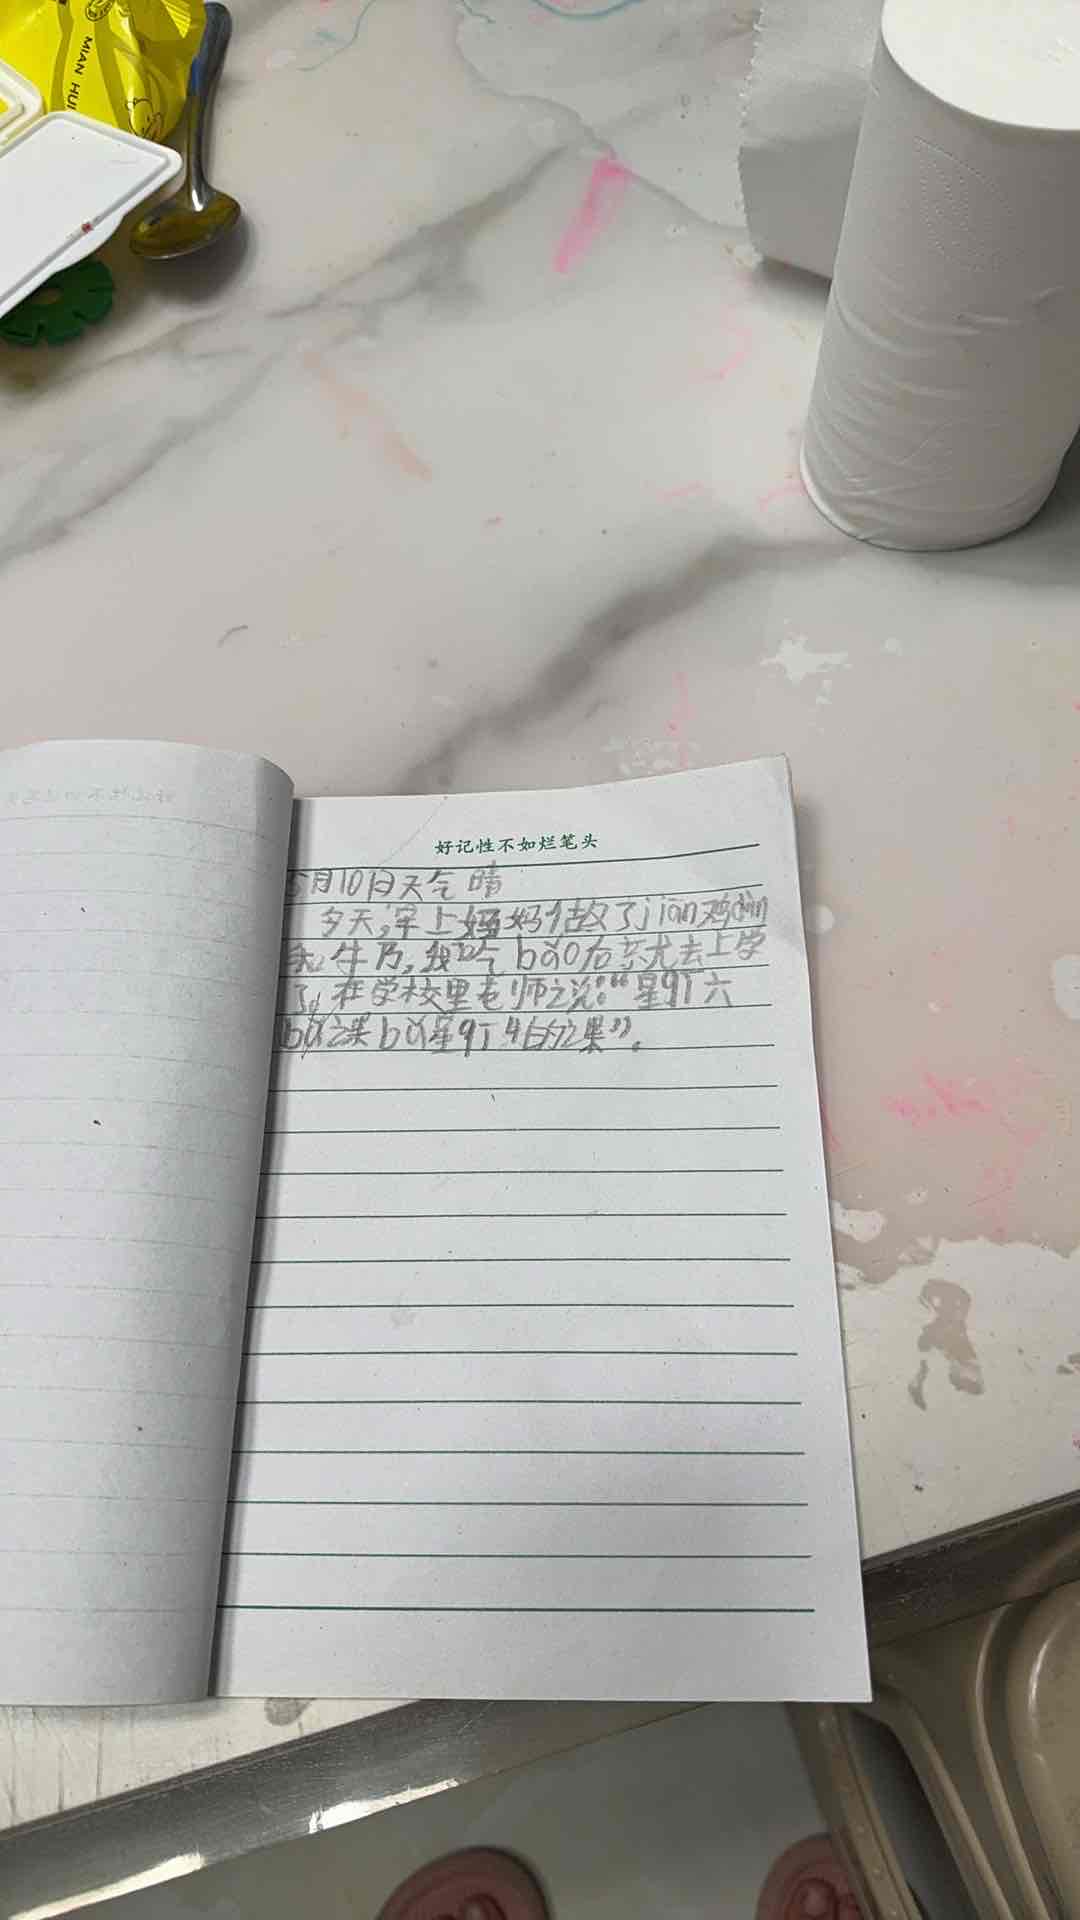 MIAN HUI
好记性不如烂笔头
5月10日天气 晴
今天,早上妈妈做了jian鸡dan
和牛乃,我吃bao后京尤去上学
了。在学校里老师说:“星qi六
ba课ba星qi4的课”。